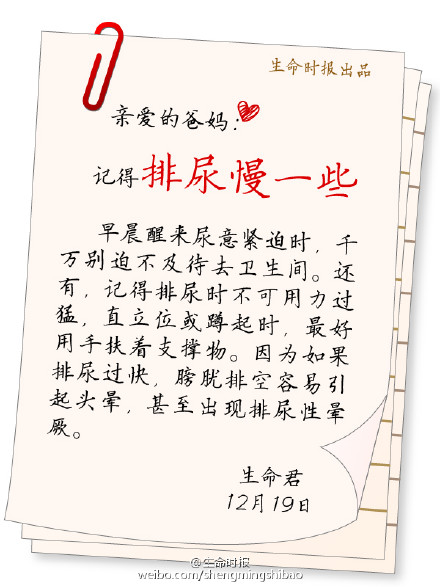 生命时报出品
亲爱的爸妈:
记得排尿慢一些
早晨醒来尿意紧迫时,千
万别迫不及待去卫生间。还
有,记得排尿时不可用力过
猛,直立位或蹲起时,最好
用手扶着支撑物。因为如果
排尿过快,膀胱排空容易引
起头晕,甚至出现排尿性晕
厥。
生命君
12月19日
@生命时报
weibo.com/shengmingshibao